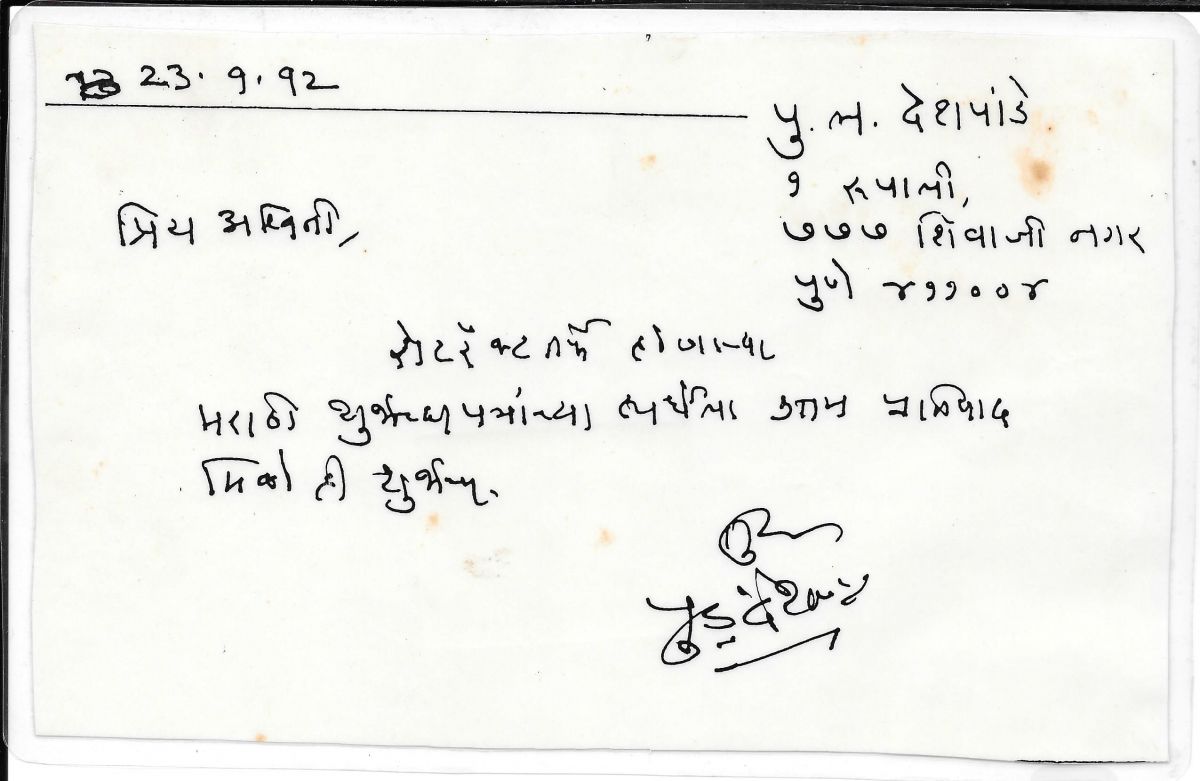 23.9.92
पु. ल. देशपांडे
१ रूपाली,
७७७ शिवाजी नगर
पुणे ४११००४
प्रिय अश्विनी,
रोटरॅक्ट तर्फे होणाऱ्या
मराठी शुभेच्छापत्रांच्या स्पर्धेला उत्तम प्रतिसाद
मिळो ही शुभेच्छा.